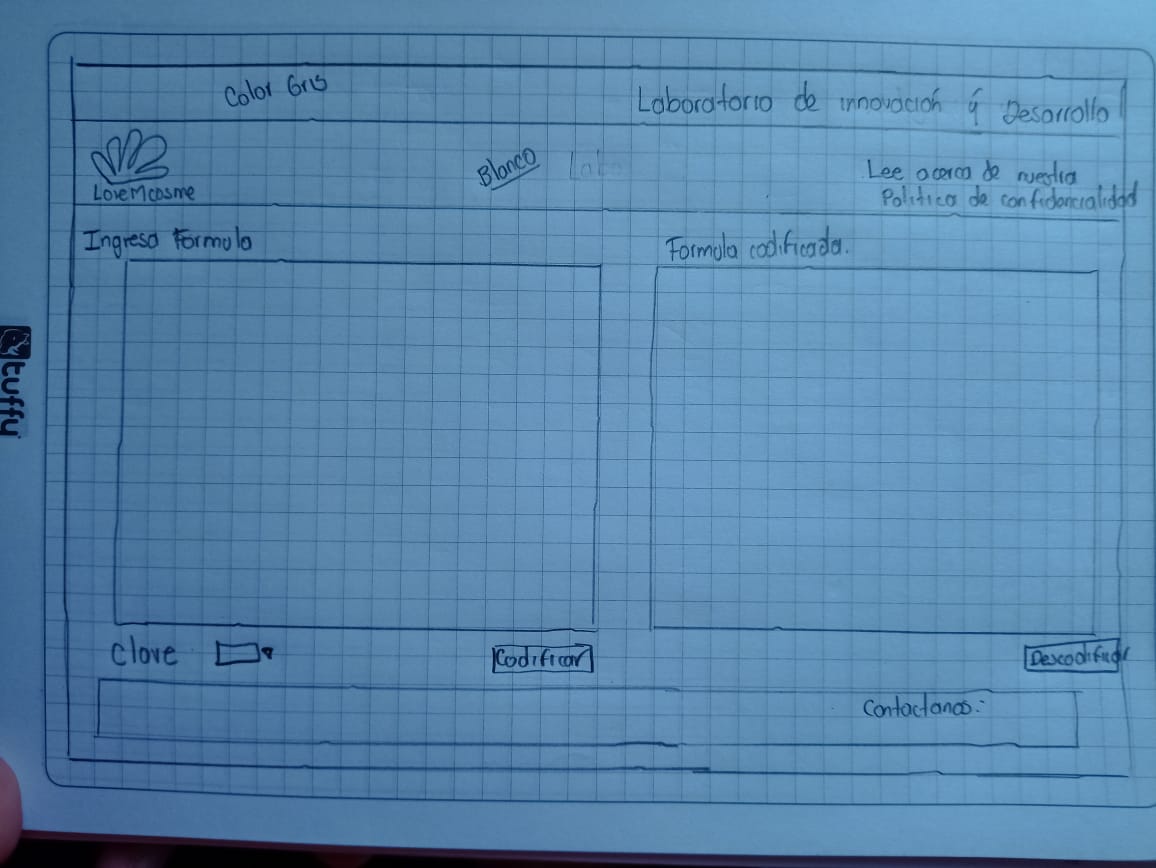 Color Gris
Laboratorio de innovación y Desarrollo
LoveMcosme
Blanco
Labo
Lee acerca de nuestra
Politica de confidencialidad
Ingresa Formula
Formula codificada.
Clave
Codificar
Descodificar
Contactanos:
tuffy